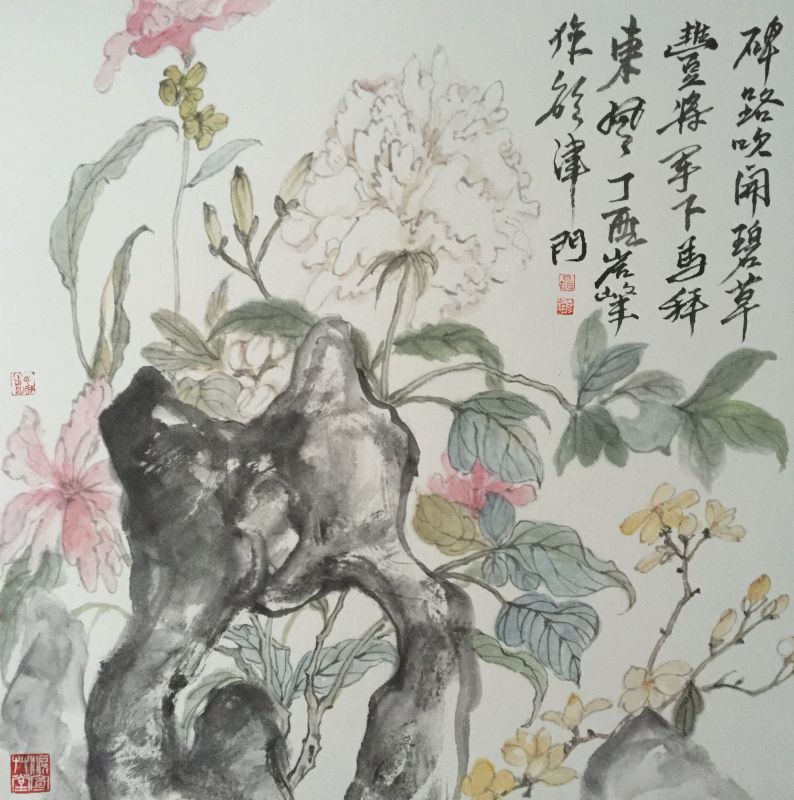 碑路吹開碧草
豐将軍下馬拜
東風丁酉岩峰
於津門